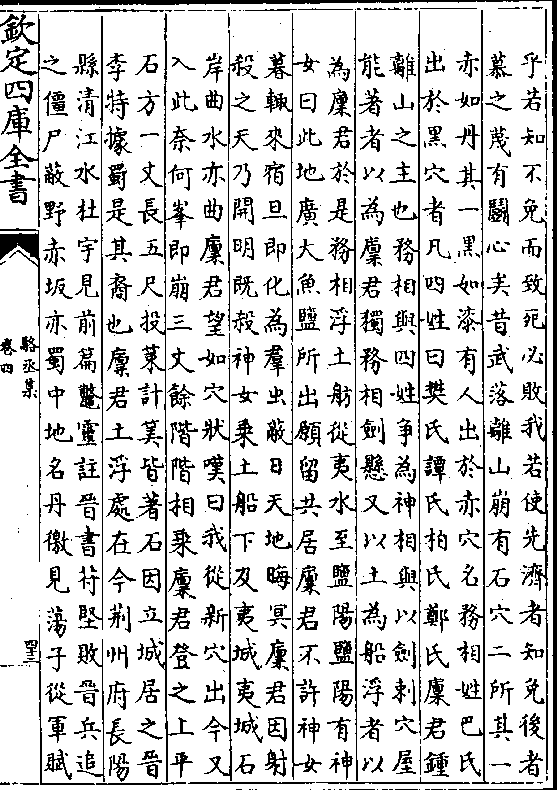 乎若知不免而致死必敗我若使先濟者知免後者
慕之蔑有鬬心矣昔武落離山崩有石穴二所其一
赤如丹其一黑如漆有人出於赤穴名務相姓巴氏
出於黑穴者凡四姓曰樊氏譚氏柏氏鄭氏廩君鍾
離山之主也務相與四姓爭為神相與以劍刺穴屋
能著者以為廩君獨務相劍懸又以土為船浮者以
為廩君於是務相浮土舫從夷水至鹽陽鹽陽有神
女曰此地廣大魚鹽所出願留共居廩君不許神女
暮輙來宿旦即化為羣虫蔽日天地晦冥廩君因射
殺之天乃開明既殺神女乘土船下及夷城夷城石
岸曲水亦曲廩君望如穴狀嘆曰我從新穴出今又
入此奈何峯即崩三丈餘階階相乘廩君登之上平
石方一丈長五尺投䇿計筭皆著石因立城居之晉
李特據蜀是其裔也廩君土浮處在今荆州府長陽
縣清江水杜宇見前篇鼈靈註晉書苻堅敗晉兵追
之僵尸蔽野赤坂亦蜀中地名丹徼見蕩子從軍賦
欽定四庫全書
駱丞集
卷四